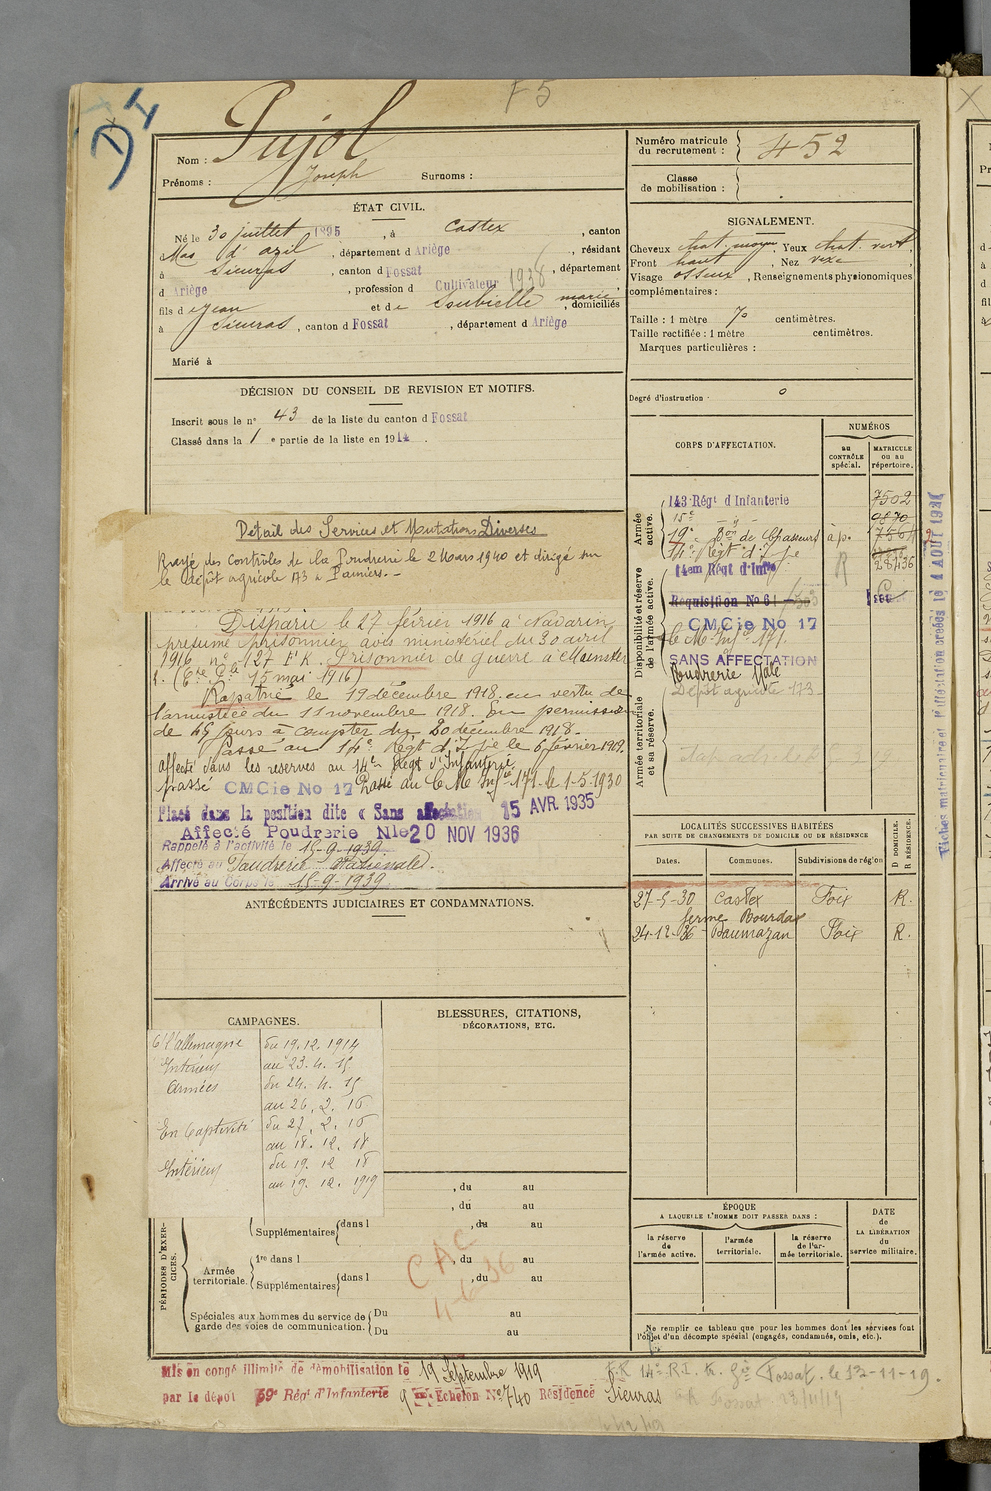 F5
Nom : Pujol
Prénoms : Joseph Surnoms :
Numéro matricule du recrutement : 452
Classe de mobilisation :
ÉTAT CIVIL.
Né le 30 juillet 1895, à Castex, canton
Mas d'azil, département d Ariège, résidant
à Sieuras, canton d Fossat, département
d Ariège, profession d Cultivateur 1936
fils d e Jean et de Soubielle marie, domiciliés
à Sieuras, canton d Fossat, département d Ariège
Marié à
SIGNALEMENT.
Cheveux chat. moyen, Yeux chat. vert,
Front haut, Nez vexe,
Visage osseux, Renseignements physionomiques
complémentaires :
Taille : 1 mètre 70 centimètres.
Taille rectifiée : 1 mètre centimètres.
Marques particulières :
Degré d'instruction · 0
DÉCISION DU CONSEIL DE REVISION ET MOTIFS.
Inscrit sous le n° 43 de la liste du canton d Fossat
Classé dans la 1 e partie de la liste en 1914.
Détail des Services et Mutations Diverses
Rayé des contrôles de la Poudrerie le 2 Mars 1940 et dirigé sur
le dépôt agricole 173 à Pamiers.-
Disparu le 27 février 1916 à Navarin
présumé prisonnier avis ministériel du 30 avril
1916 n° 127 F K. Prisonnier de guerre à Munster
(15 mai 1916)
Rapatrié le 19 décembre 1918 en vertu de
l'armistice du 11 novembre 1918. En permission
de 45 jours à compter du 20 décembre 1918.
Passé au 14e Régt d'Ie le 6 février 1919.
Affecté dans les réserves au 14e Régt d'Infanterie
passé CMCie No 17 Passé au C M Infie 171 le 1-5-1930
Placé dans la position dite « Sans affectation 15 AVR. 1935
Affecté Poudrerie Nle 20 NOV 1936
Rappelé à l'activité le 15-9-1939
Affecté au Poudrerie Nationale.
Arrivé au Corps le 15-9-1939
CORPS D'AFFECTATION.
NUMÉROS
au CONTRÔLE spécial.
MATRICULE ou au répertoire.
Armée active.
143 Régt d'Infanterie 7502
15e 9870
19e Bon de Chasseurs à p. 7564
14e Régt d'Ie 28436
Disponibilité et réserve de l'armée active.
14em Régt d'Infie
Requisition No 61
CMCie No 17
C M Infie 171.
SANS AFFECTATION
Poudrerie Nale
Armée territoriale et sa réserve.
Dépôt agricole 173
Fiches matriculaire et d'affectation créées le 4 AOUT 192
LOCALITÉS SUCCESSIVES HABITÉES
PAR SUITE DE CHANGEMENTS DE DOMICILE OU DE RÉSIDENCE
Dates. Communes. Subdivisions de région D DOMICILE. R RÉSIDENCE.
27-5-30 Castex Foix R.
ferme Bourdas
24-12-36 Daumazan Foix R.
ANTÉCÉDENTS JUDICIAIRES ET CONDAMNATIONS.
CAMPAGNES.
C/ l'allemagne du 19.12.1914
Intérieur au 23.4.15
Armées du 24.4.15
au 26.2.16
En Captivité du 27.2.16
au 18.12.18
Intérieur du 19.12 18
au 19.12.1919
BLESSURES, CITATIONS,
DÉCORATIONS, ETC.
PÉRIODES D'EXERCICES.
, du au
, du au
Supplémentaires dans l , du au
Armée territoriale.
1re dans l , du au
Supplémentaires dans l , du au
CAC
11-6-36
Spéciales aux hommes du service de garde des voies de communication.
Du au
Du au
ÉPOQUE
A LAQUELLE L'HOMME DOIT PASSER DANS :
la réserve de l'armée active.
l'armée territoriale.
la réserve de l'armée territoriale.
DATE de LA LIBÉRATION du service militaire.
Ne remplir ce tableau que pour les hommes dont les services font
l'objet d'un décompte spécial (engagés, condamnés, omis, etc.).
Mis en congé illimité de démobilisation le 19 Septembre 1919
par le dépôt 59e Régt d'Infanterie 9 Echelon No 740 Résidence Sieuras
F.R 14e R.I. Fossat. le 12-11-19.
Fossat